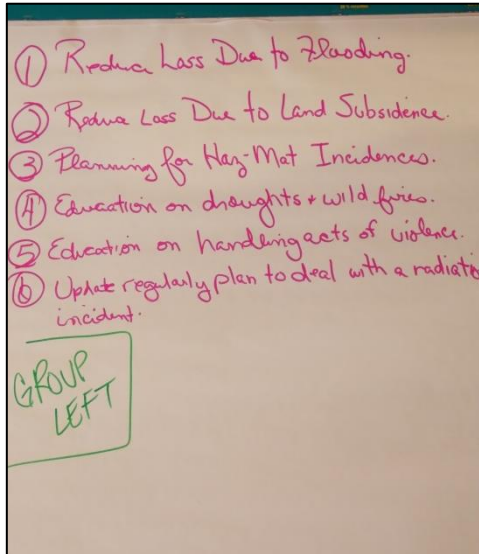 ① Reduce Loss Due to Flooding.
② Reduce Loss Due to Land Subsidence.
③ Planning for Haz-Mat Incidences.
④ Education on droughts + wild fires.
⑤ Education on handling acts of violence.
⑥ Update regularly plan to deal with a radiatio
incident.
GROUP
LEFT